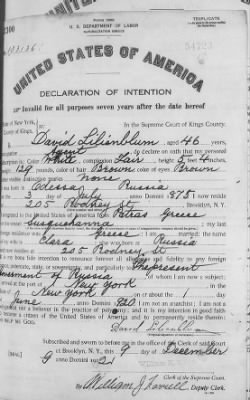 TRIPLICATE
U. S. DEPARTMENT OF LABOR
NATURALIZATION SERVICE
UNITED STATES OF AMERICA
DECLARATION OF INTENTION
Invalid for all purposes seven years after the date hereof
of New York,
County of Kings,
In the Supreme Court of Kings County.
David Lilienblum, aged 46 years,
occupation Agent, do declare on oath that my personal
description is: Color White, complexion Fair, height 5 feet 4 inches,
weight 129 pounds, color of hair Brown, color of eyes Brown
other visible distinctive marks None
Odessa Russia
3 July, anno Domini 1875; I now reside
at 205 Rodney St., Brooklyn, N. Y.
I emigrated to the United States of America from Patras Greece
Susquehanna; my last
Greece; I am married; the name
Clara; Russia
205 Rodney St
It is my bona fide intention to renounce forever all allegiance and fidelity to any foreign
prince, potentate, state, or sovereignty, and particularly to The present
Government of Russia, of whom I am now a subject;
I arrived at the port of New York, in the
State of New York, on or about the 1 day
of June, anno Domini 1920; I am not an anarchist; I am not a
polygamist nor a believer in the practice of polygamy; and it is my intention in good faith
to become a citizen of the United States of America and to permanently reside therein:
SO HELP ME GOD.
David Lilienblum
Subscribed and sworn to before me in the office of the Clerk of said Court
at Brooklyn, N. Y., this 9 day of December
anno Domini 1921
Clerk of the Supreme Court.
By William J. Lavell, Deputy Clerk.